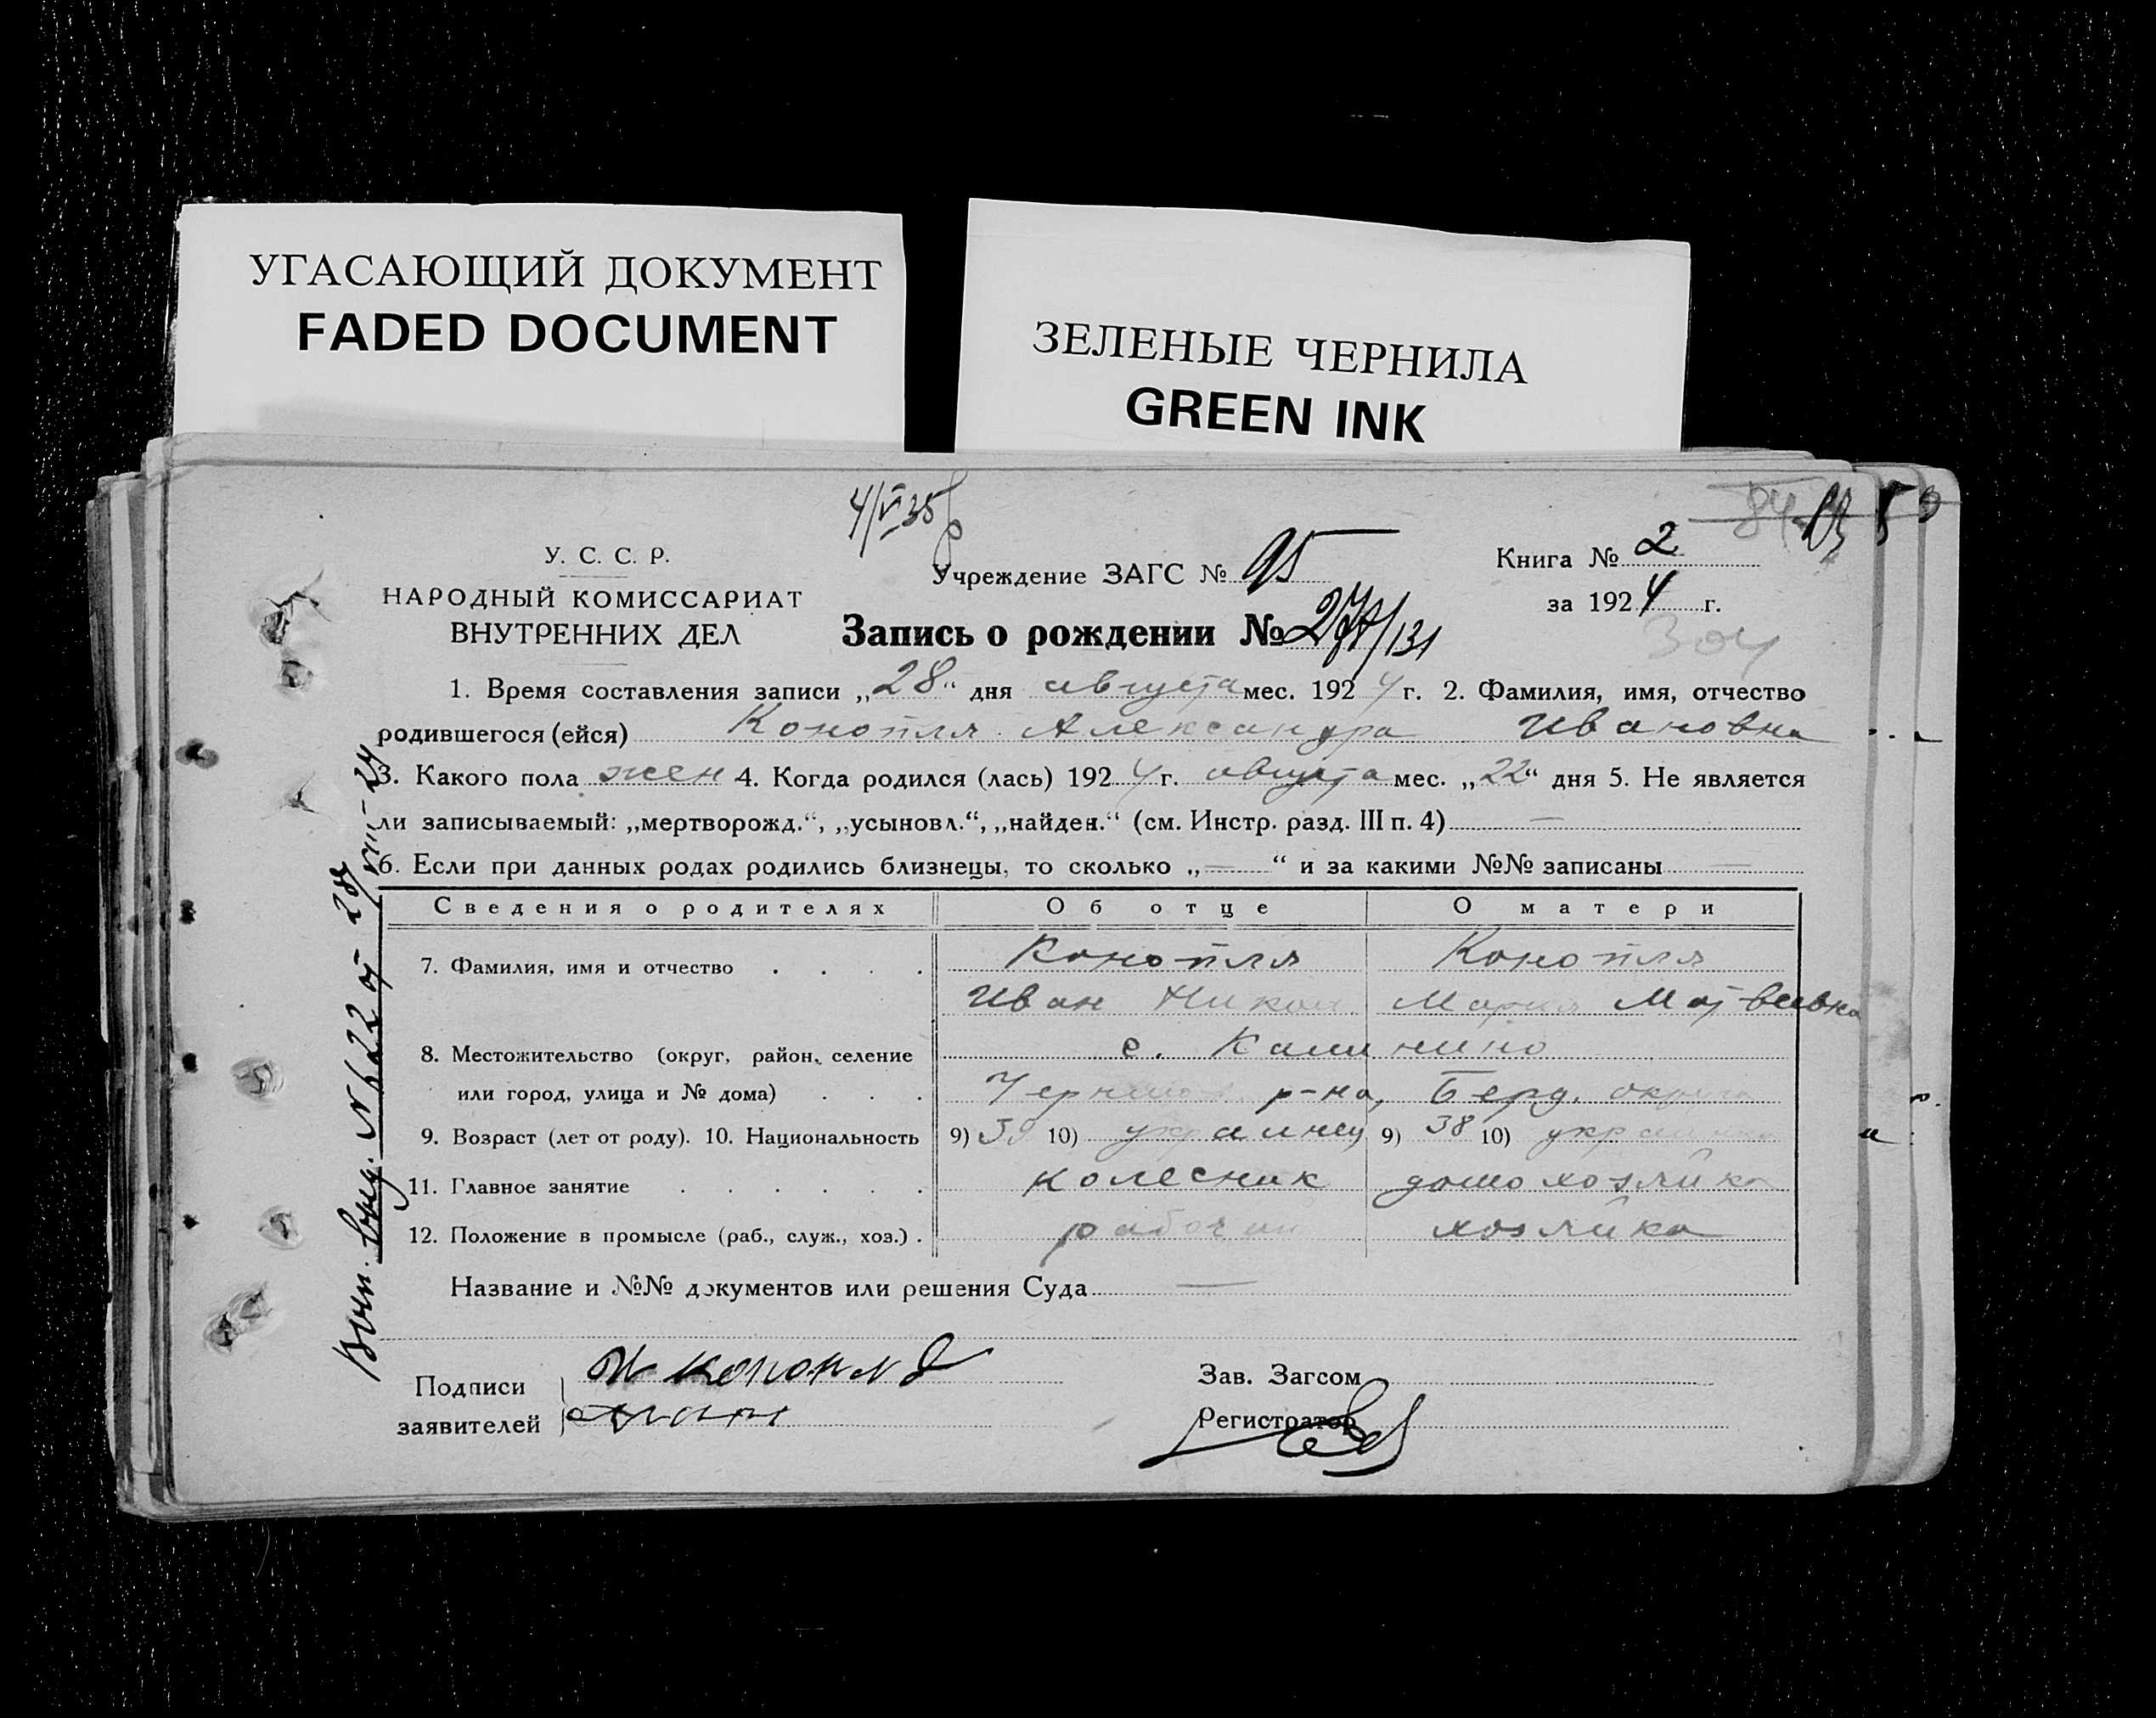 УГАСАЮЩИЙ ДОКУМЕНТ
FADED DOCUMENT
ЗЕЛЕНЫЕ ЧЕРНИЛА
GREEN INK
4/V 35
84
У. С. С. Р.
НАРОДНЫЙ КОМИССАРИАТ
ВНУТРЕННИХ ДЕЛ
Учреждение ЗАГС № 95
Книга № 2
за 1924 г.
Запись о рождении № /131
304
1. Время составления записи „28“ дня августа мес. 1924 г. 2. Фамилия, имя, отчество
родившегося (ейся) Конопля Александра Ивановна
3. Какого пола жен 4. Когда родился (лась) 1924 г. августа мес. „22“ дня 5. Не является
ли записываемый: „мертворожд.“, „усыновл.“, „найден.“ (см. Инстр. разд. III п. 4) —
6. Если при данных родах родились близнецы, то сколько „—“ и за какими №№ записаны —
Сведения о родителях Об отце О матери
7. Фамилия, имя и отчество Конопля Конопля
Иван Никол. Мария Матвеевна
8. Местожительство (округ, район, селение с. Калинино
или город, улица и № дома) р-на, Берд. округа
9. Возраст (лет от роду). 10. Национальность 9) 39 10) украинец 9) 38 10) украинка
11. Главное занятие колесник домохозяйка
12. Положение в промысле (раб., служ., хоз.) рабочий хозяйка
Название и №№ документов или решения Суда —
Подписи
заявителей
И Конопля
Зав. Загсом
Регистратор
№ 622 от 28/VIII-24